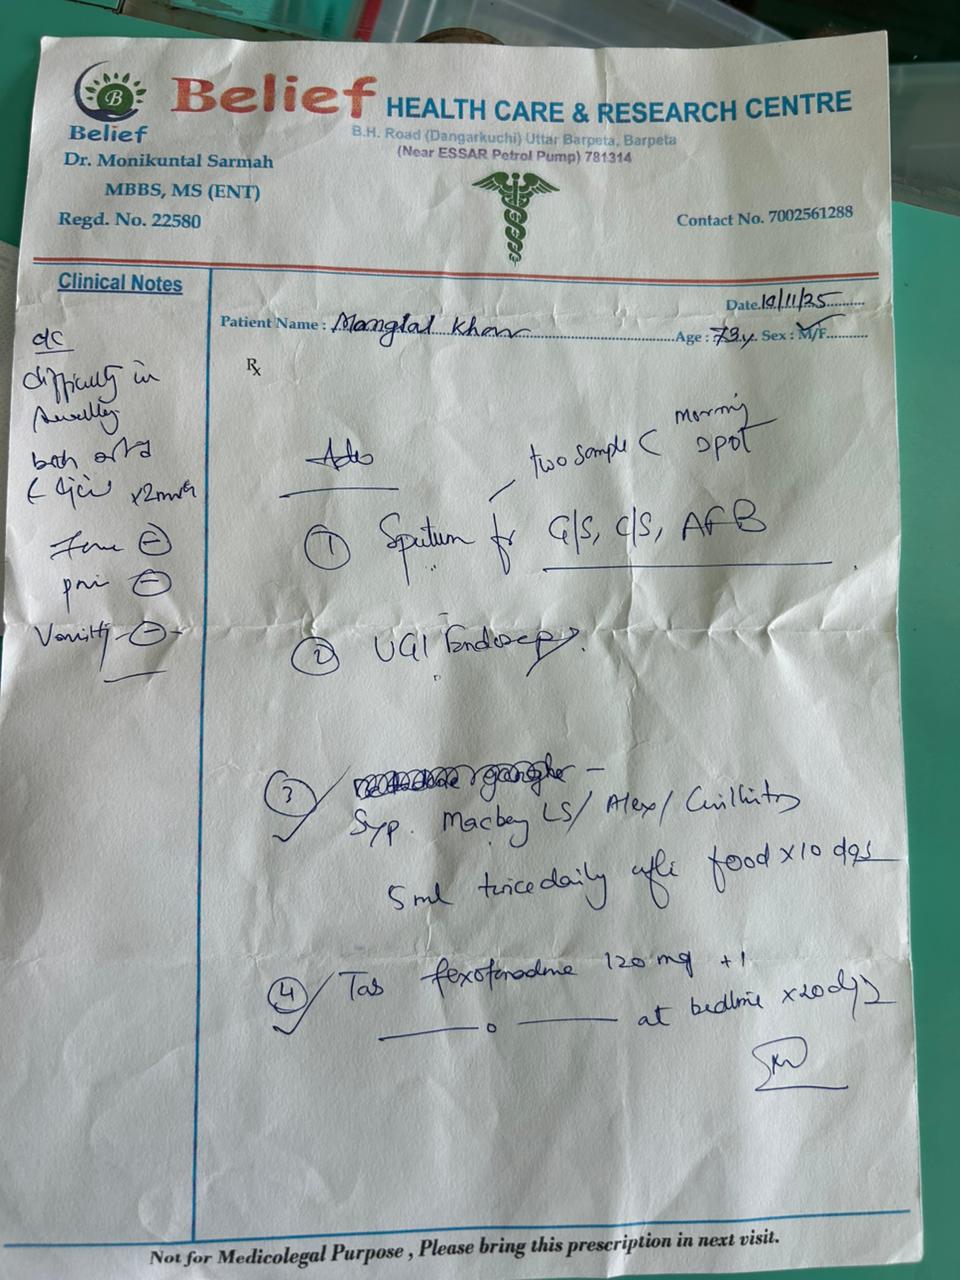 B
Belief
Belief HEALTH CARE & RESEARCH CENTRE
B.H. Road (Dangarkuchi) Uttar Barpeta, Barpeta
(Near ESSAR Petrol Pump) 781314
Dr. Monikuntal Sarmah
MBBS, MS (ENT)
Regd. No. 22580
Contact No. 7002561288
Clinical Notes
Date 19/11/25
Patient Name : Khan Age : 73y. Sex : M/F
Rx
difficulty in
both
x2
⊖
⊖
⊖
two sample < morning
spot
① Sputum for G/S, C/S, AFB
② UGI Endoscopy.
③
Syp. LS/ Alex/
5 ml twice daily food x10
④ Tab fexofenadine 120 mg +1
o at bedtime x20
Not for Medicolegal Purpose , Please bring this prescription in next visit.